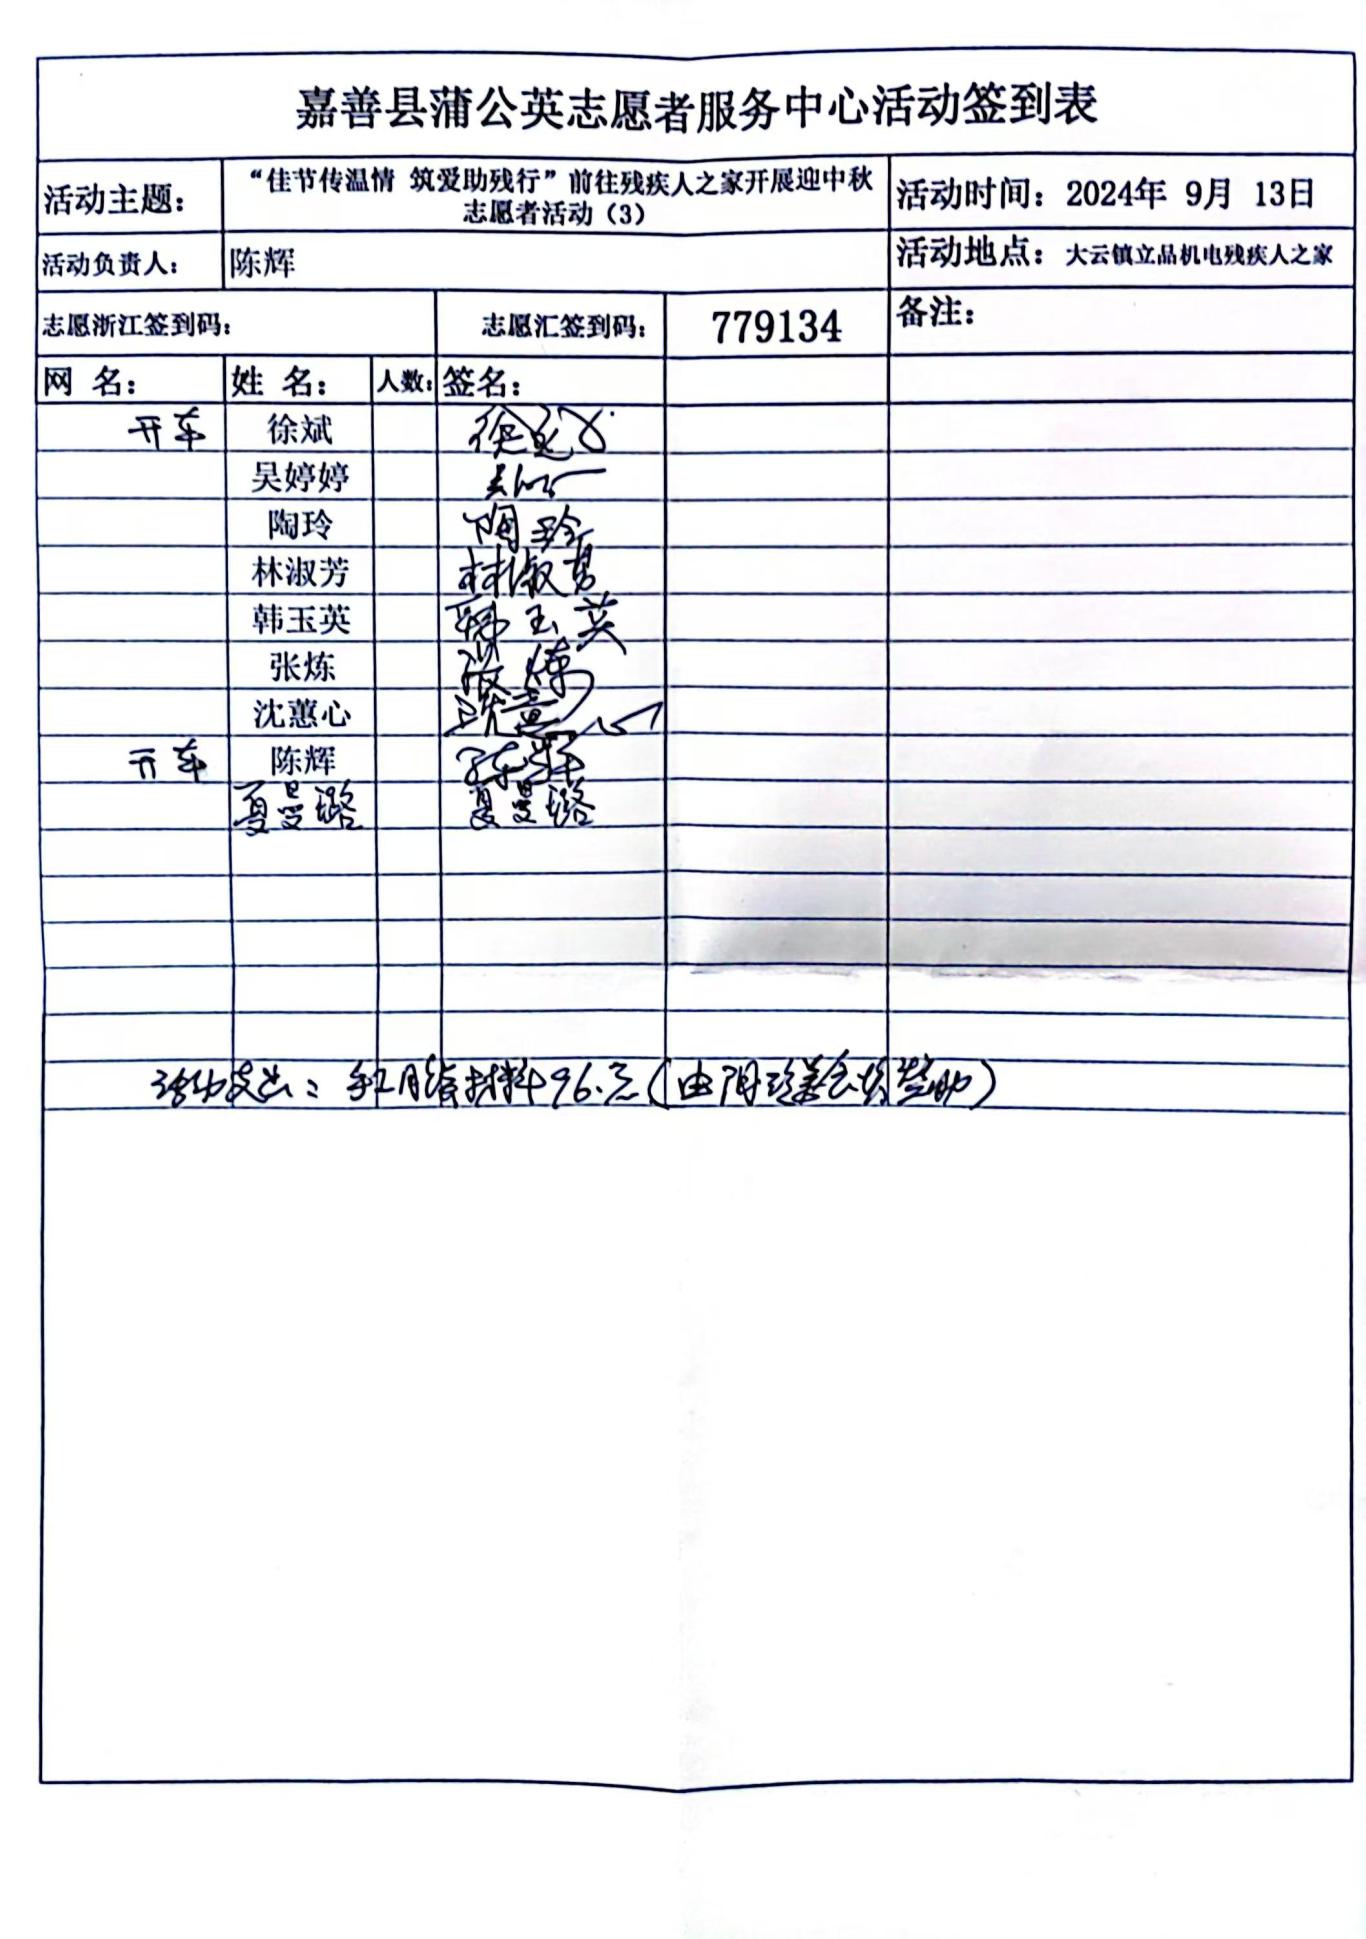 嘉善县蒲公英志愿者服务中心活动签到表
活动主题：
“佳节传温情 筑爱助残行”前往残疾人之家开展迎中秋
志愿者活动（3）
活动时间：2024年 9月 13日
活动负责人：
陈辉
活动地点：大云镇立品机电残疾人之家
志愿浙江签到码：
志愿汇签到码：
779134
备注：
网 名： 姓 名： 人数： 签名：
开车 徐斌 徐斌
吴婷婷
陶玲 陶玲
林淑芳 林淑芳
韩玉英 韩玉英
张炼 张炼
沈蕙心 沈蕙心
开车 陈辉 陈辉
夏曼璐 夏曼璐
活动支出：手工月饼材料96.元（由陶玲 赞助）